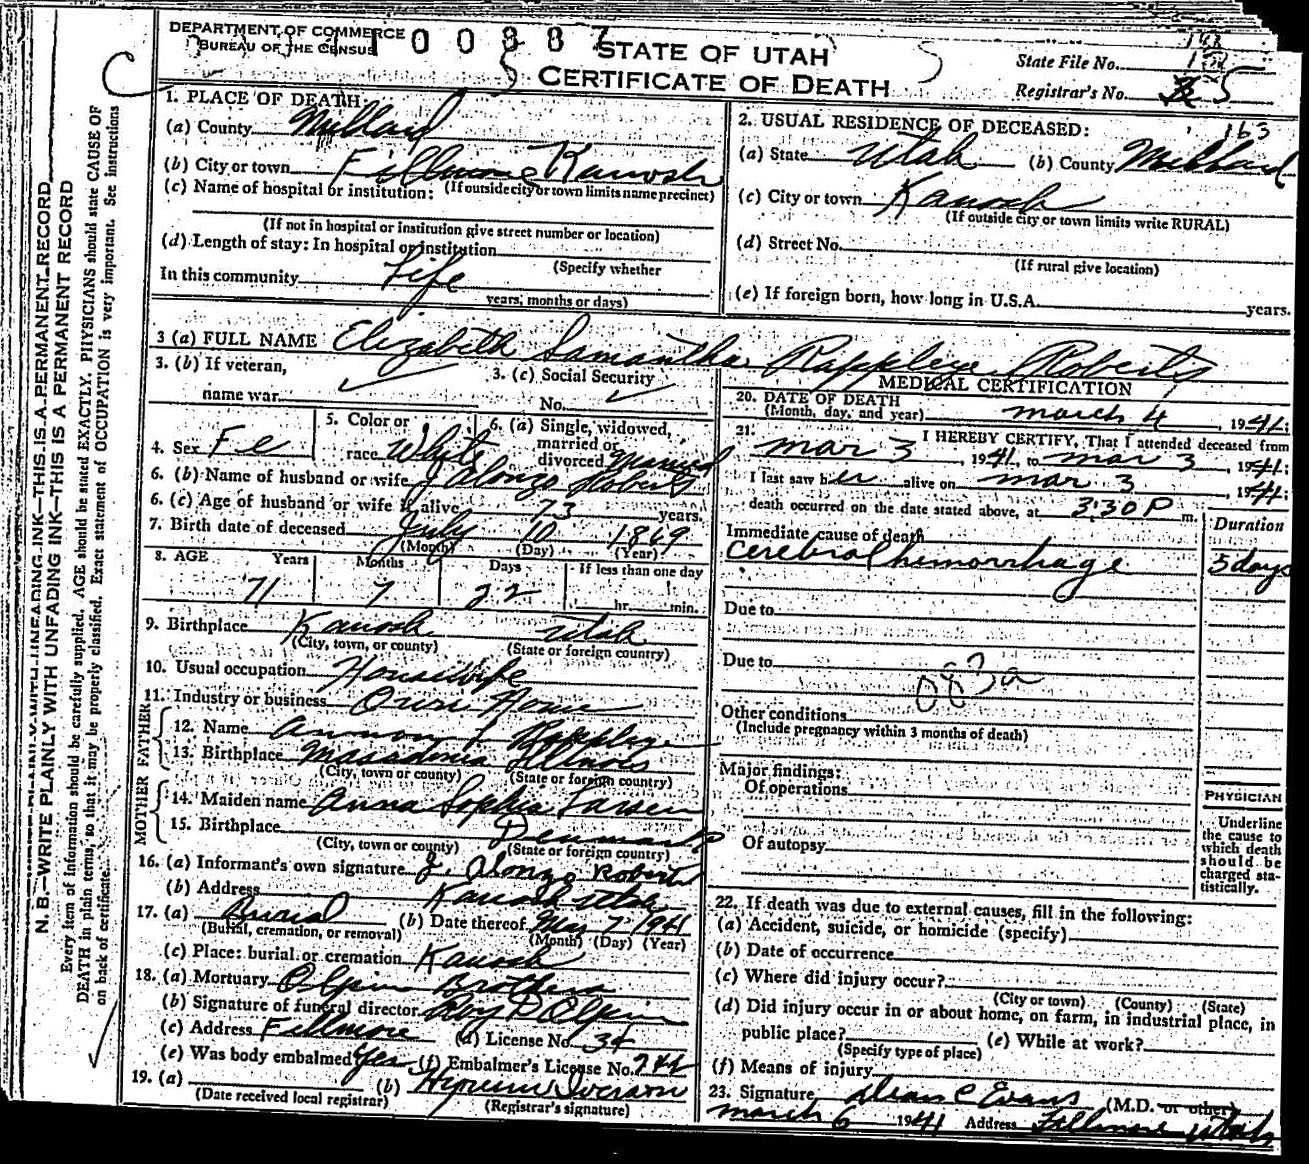 DEPARTMENT OF COMMERCE
BUREAU OF THE CENSUS
STATE OF UTAH
CERTIFICATE OF DEATH
State File No.
Registrar's No. 5
N. B.—WRITE PLAINLY WITH UNFADING INK—THIS IS A PERMANENT RECORD
Every item of information should be carefully supplied. AGE should be stated EXACTLY. PHYSICIANS should state CAUSE OF
DEATH in plain terms, so that it may be properly classified. Exact statement of OCCUPATION is very important. See instructions
on back of certificate.
1. PLACE OF DEATH:
(a) County Millard
(b) City or town Fillmore Kanosh
(c) Name of hospital or institution: (If outside city or town limits name precinct)
(If not in hospital or institution give street number or location)
(d) Length of stay: In hospital or institution
(Specify whether
In this community Life
years, months or days)
2. USUAL RESIDENCE OF DECEASED: 163
(a) State Utah (b) County Millard
(c) City or town Kanosh
(If outside city or town limits write RURAL)
(d) Street No.
(If rural give location)
(e) If foreign born, how long in U.S.A. years.
3 (a) FULL NAME Elizabeth Samantha Rappleye Roberts
3. (b) If veteran,
name war
3. (c) Social Security
No.
4. Sex Fe
5. Color or
race White
6. (a) Single, widowed,
married or
divorced Married
6. (b) Name of husband or wife J Alonzo Roberts
6. (c) Age of husband or wife if alive 73 years.
7. Birth date of deceased July 10 1869
(Month) (Day) (Year)
8. AGE Years Months Days If less than one day
71 7 22 hr. min.
9. Birthplace Kanosh Utah
(City, town, or county) (State or foreign country)
10. Usual occupation Housewife
11. Industry or business Own Home
FATHER
12. Name Rappleye
13. Birthplace Illinois
(City, town or county) (State or foreign country)
MOTHER
14. Maiden name Anna Sophia Larsen
15. Birthplace Denmark
(City, town or county) (State or foreign country)
16. (a) Informant's own signature J. Alonzo Roberts
(b) Address Kanosh Utah
17. (a) Burial (b) Date thereof Mar 7 1941
(Burial, cremation, or removal) (Month) (Day) (Year)
(c) Place: burial or cremation Kanosh
18. (a) Mortuary Olpin Brothers
(b) Signature of funeral director Roy D Olpin
(c) Address Fillmore (d) License No. 34
(e) Was body embalmed Yes (f) Embalmer's License No. 244
19. (a) (b) Hyrum Iverson
(Date received local registrar) (Registrar's signature)
MEDICAL CERTIFICATION
20. DATE OF DEATH
(Month, day, and year) March 4, 1941:
21. I HEREBY CERTIFY, That I attended deceased from
Mar 3, 1941, to Mar 3, 1941:
I last saw her alive on Mar 3, 1941:
death occurred on the date stated above, at 3:30 P m.
Duration
Immediate cause of death
Cerebral hemorrhage 5 days
Due to
Due to
083a
Other conditions
(Include pregnancy within 3 months of death)
Major findings:
Of operations
Of autopsy
PHYSICIAN
Underline
the cause to
which death
should be
charged sta-
tistically.
22. If death was due to external causes, fill in the following:
(a) Accident, suicide, or homicide (specify)
(b) Date of occurrence
(c) Where did injury occur?
(City or town) (County) (State)
(d) Did injury occur in or about home, on farm, in industrial place, in
public place? (e) While at work?
(Specify type of place)
(f) Means of injury
23. Signature Dean C Evans (M.D. or other)
March 6 1941 Address Fillmore Utah